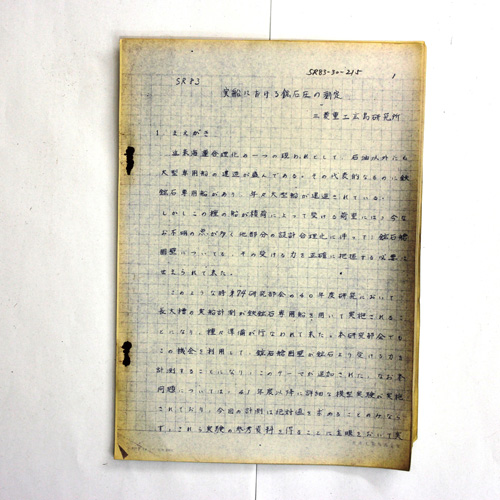 SR83-30-215
1
SR83
実船における鉱石圧の測定
三菱重工広島研究所
1. まえがき
近年海運合理化の一つの現われとして、石油以外にも
大型専用船の建造が盛んである。その代表的なものに鉄
鉱石専用船があり、年々大型船が建造されている。
しかしこの種の船が積荷によって受ける荷重には、今な
お不明の点が多く他部分の設計合理化に伴って、鉱石艙
囲壁についても、その受ける力を正確に把握する必要に
せまられて来た。
このような時第74研究部会の40年度研究において
長大槽の実船計測が鉄鉱石専用船を用いて実施されるこ
とになり、種々準備が行なわれて来た。本研究部会でも、
この機会を利用して、鉱石艙囲壁が鉱石より受ける力を
計測することになり、このテーマが追加された。なお本
問題については、41年度以降に詳細な模型実験が実施
されており、今回の計測は絶対値を求めることのみなら
ず、これら実験の参考資料を得ることに主眼をおいて実